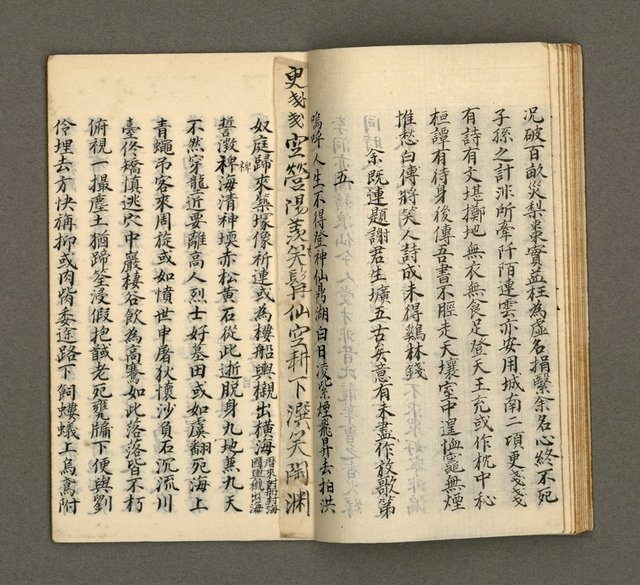 況破百畝災梨棗實益枉為虛名捐緊余名心終不死
子孫之計非所牽阡陌連雲亦安用城南二頃更戔戔
有詩有文堪擲地無衣無食足登天王充或作枕中祕
桓譚有待身後傳吾書不脛走天壤室中遑恤竈無煙
惟愁白傅將笑人詩成未得雞林錢
同時余既連題謝君生壙五古矣意有未盡作放歌第
五
嗚呼人生不得登神仙鼎湖白日凌紫煙飛昇去拍洪
更戔戔空營陽羨笑髯仙空耕下潠笑陶淵
奴庭歸來築塚像祈連或為樓船輿櫬出橫海
誓澂裨海清神堧赤松黃石從此逝脫身九地䓕九天
裨
不然穿龍近要離高人烈士好墓田或如虞翻死海上
青蠅弔客來周旋或如憤世申屠狄懷沙負石沉流川
臺佟矯慎逃穴中巖棲谷飲為高騫如此落落皆不朽
俯視一撮塵土猶蹄筌浸假抱馘老死甕牖下便與劉
伶埋去方快稱抑或肉胔委途路下飼螻蟻上烏鳶附